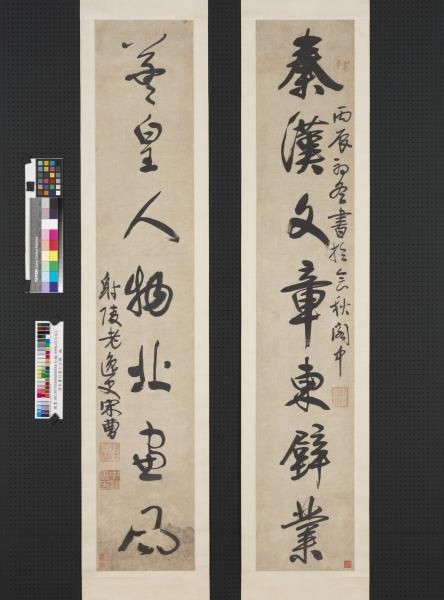 秦漢文章東壁業
丙辰初冬書於含秋閣中
羲皇人物北窗風
射陵老逸史宋曹